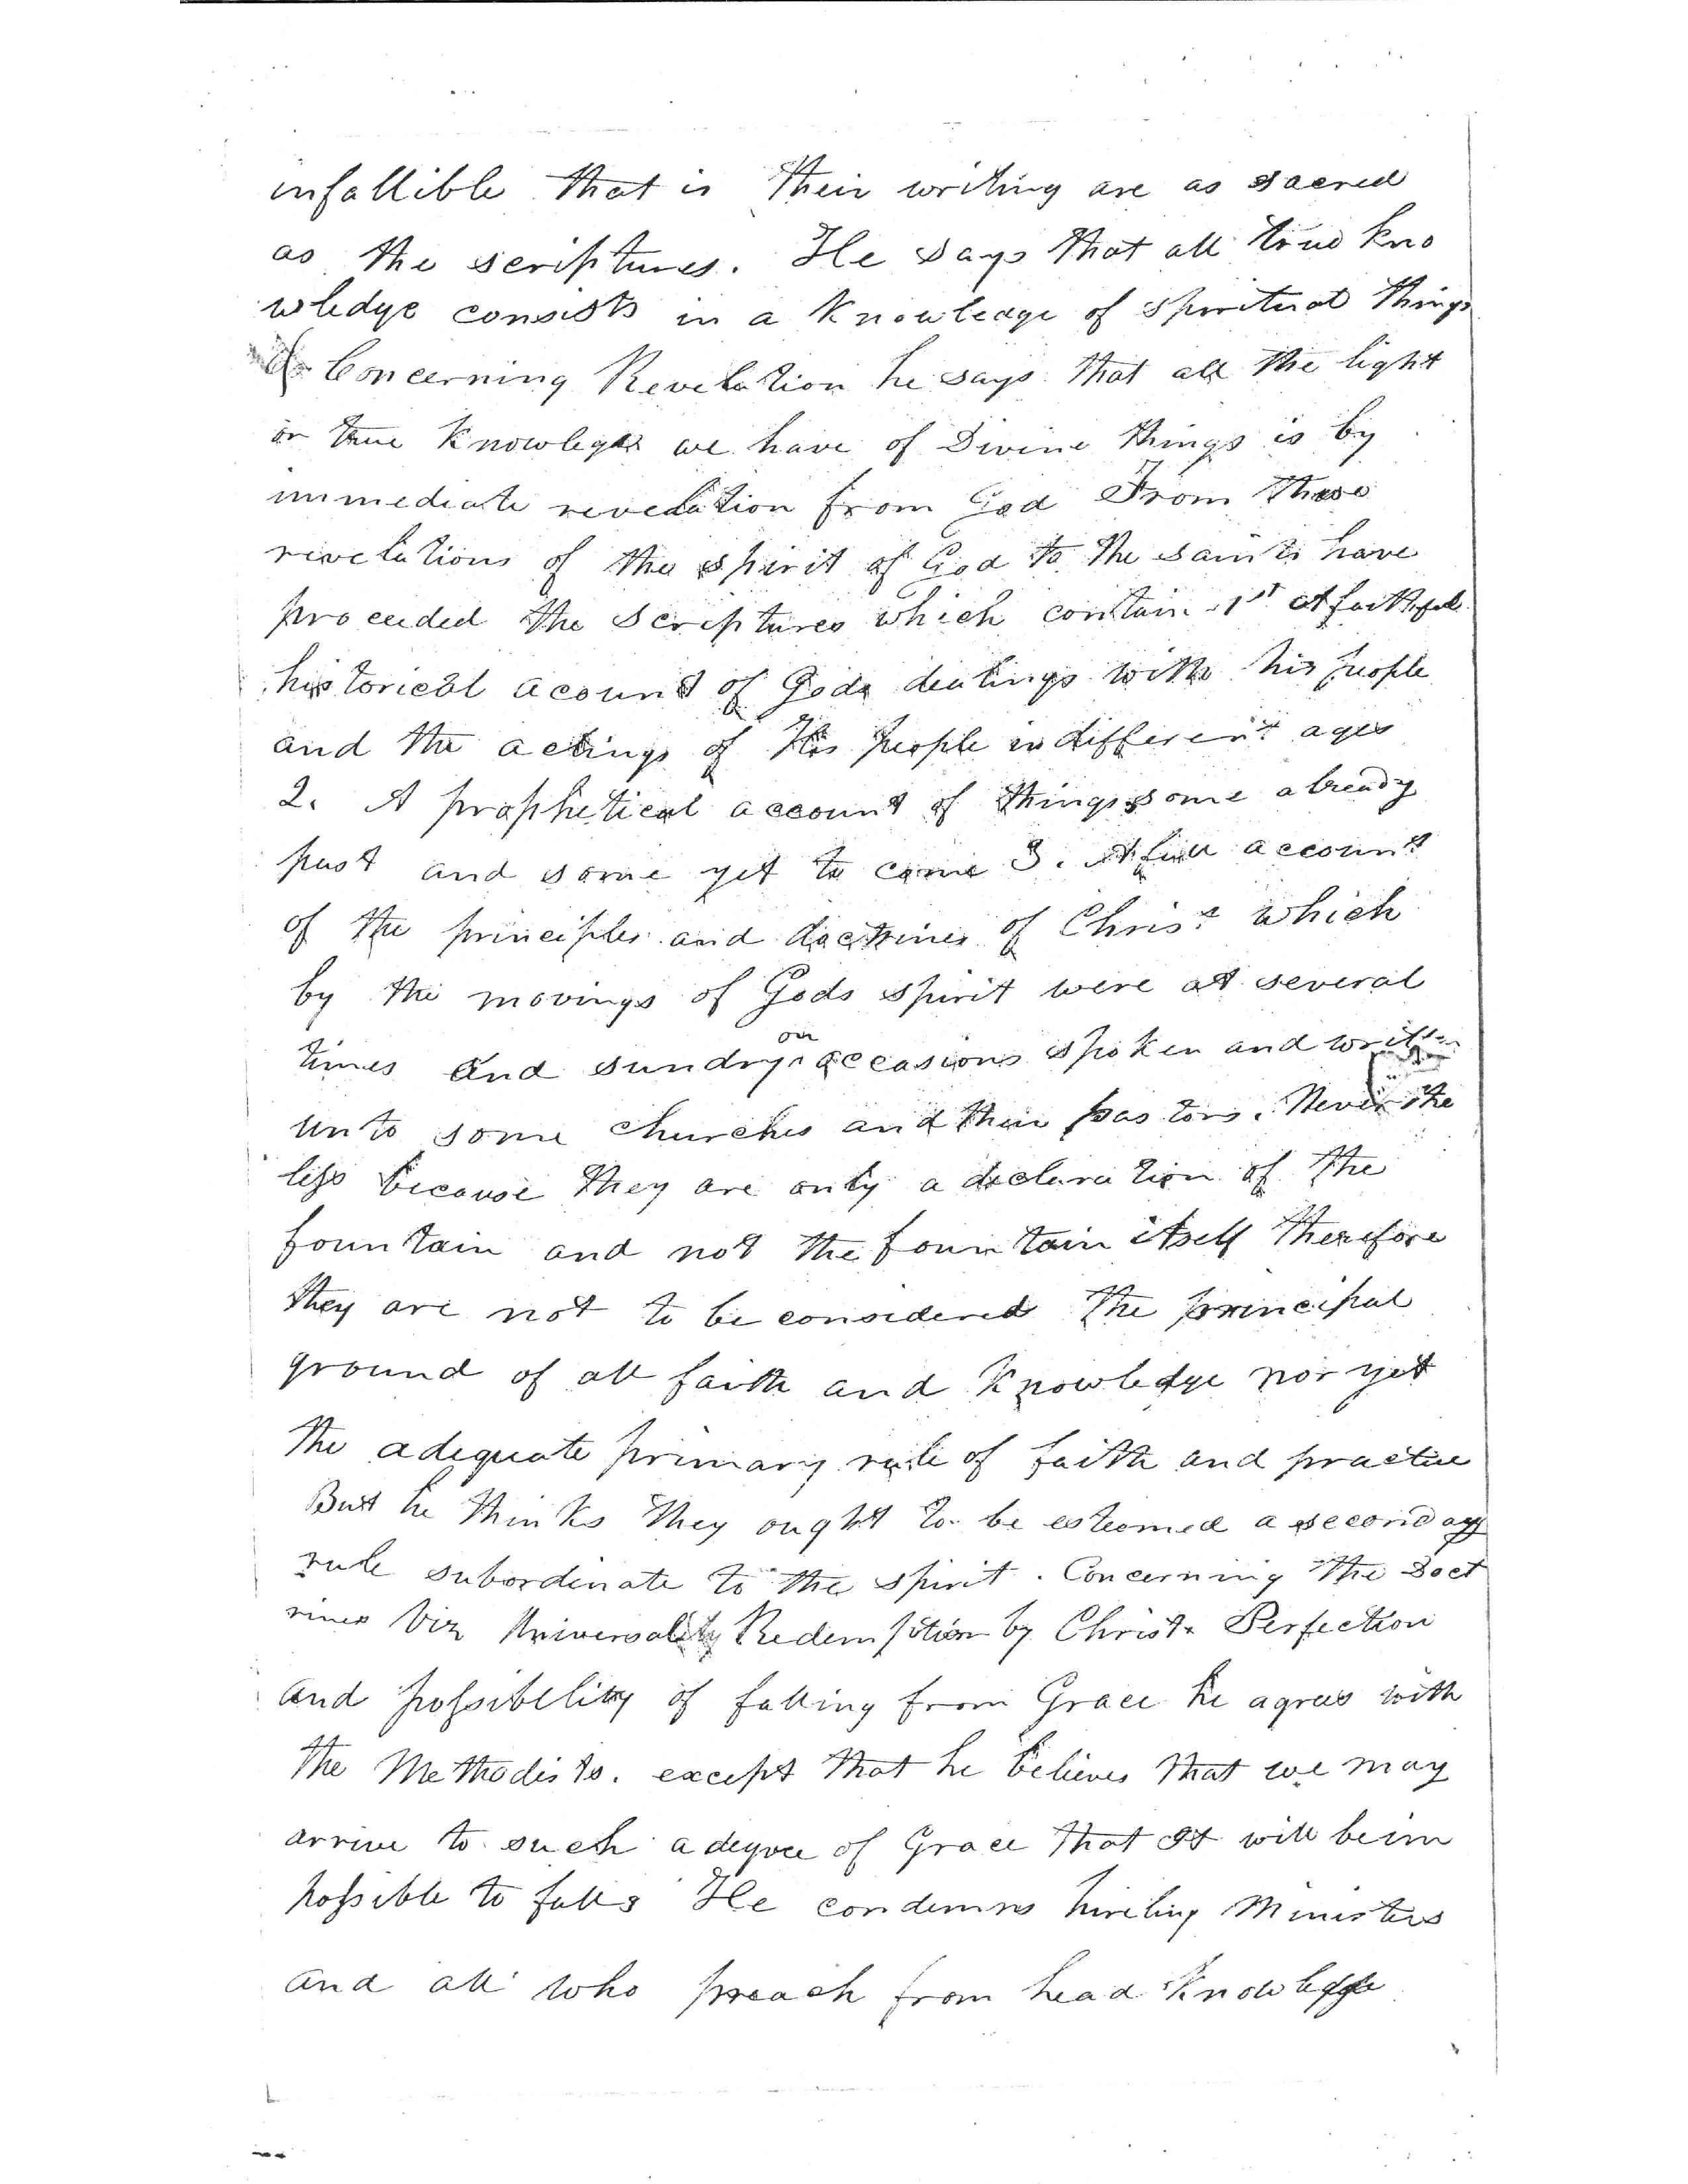 infallible that is their writing are as sacred
as the scriptures. He says that all true kno
wledge consists in a Knowleage of spiritual things
& Concerning Revelation he says that all the light
or true Knowlege we have of Divine things is by
immediate revelation from God From these
revelations of the spirit of God to the saints have
proceeded the Scriptures which contain 1st A faithful
historical acount of Gods dealings with his people
and the actings of His people in different ages
2. A prophetical account of things some already
past and some yet to come 3. A full account
of the principles and doctrines of Christ which
by the movings of Gods spirit were at several
times and sundry on occasions spoken and written
unto some churches and their pastors. Never the
less because they are only a declaration of the
fountain and not the fountain itself Therefore
they are not to be considered the principal
ground of all faith and Knowledge nor yet
the adequate primary rule of faith and practice
But he thinks they ought to be esteemed a seconday
rule subordinate to the spirit. Concerning the Doct
rines Viz Universality Redemption by Christ Perfection
and possibility of falling from Grace he agrees with
the Methodists. except that he believes that we may
arrive to such a degree of Grace that It will be im
possible to fall He condemns hireling Ministers
and all who preach from head Knowledge